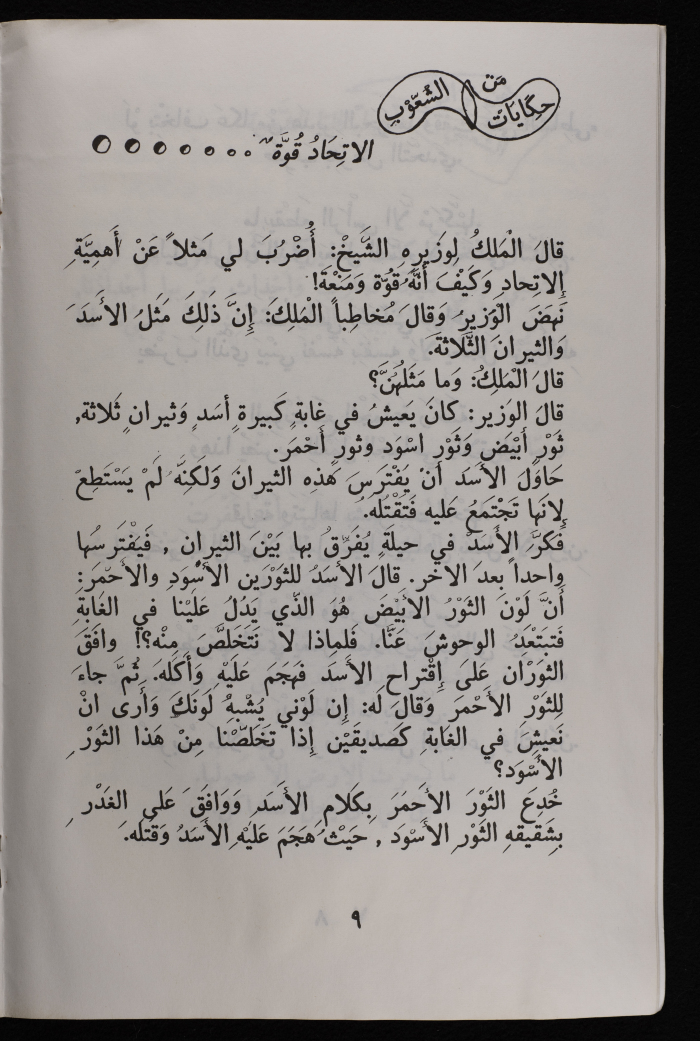 حِكَايَاتْ مَن الشُّعُوْبِ
الاتِحَادُ قُوَّة
قالَ الْمَلكُ لِوَزيرِهِ الشَّيخْ: أُضْرُبَ لي مَثلاً عَنْ أَهمِيَّةِ
إِلاتِحادِ وَكَيْفَ أَنَّهُ قُوّة وَمَنْعَة!
نَهضَ الْوَزيرُ وَقالَ مُخاطِباً الْمَلِكَ: إِنَّ ذَلِكَ مَثَلُ الأَسَدَ
وَالثيرانَ الثَّلاثَة.
قالَ الْمَلِكُ: وَما مَثَلُهُنَّ؟
قالَ الوَزير: كانَ يَعيشُ في غابَةٍ كَبيرة أسَد وَثيران ثَلاثة,
ثَوْر أَبْيَض وَثَوْر اسْوَد وَثور أَحْمَر.
حَاوَلَ الأَسَد أَنْ يَفْتَرِسَ هَذِه الثيرانَ وَلَكِنَّهُ لَمْ يَسْتَطِعْ
لِانَها تَجْتَمَعُ عَليه فَتَقْتُلَهُ.
فَكَرَّ الأَسَدْ في حيلَةٍ يُفَرِّقُ بها بَيْنَ الثيرانِ , فَيَفْتَرِسُها
واحداً بعدَ الاخر. قالَ الأَسَدُ للثَوْرَين الأَسْوَدِ والأَحْمَرِ:
أَنَّ لَوْنَ الثَوْرُ الأَبْيَضَ هُوَ الّذي يَدُلُ عَلَيْنا في الغَابَةِ
فَتبتَعْدُ الوحوشَ عَنَّا. فَلِماذا لا نَتَخَلَّصَ مِنْه؟! وافَقَ
الثَوَرْان عَلىَ إِقْتراح الأَسدَ فَهَجَمَ عَلَيْهِ وَأَكَلَهَ. ثُمَّ جاءَ
لِلثَوْرِ الأَحْمَرَ وَقالَ لَه: إِن لَوْني يُشْبِهُ لَونَكَ وَأَرى انْ
نَعيشَ في الغَابَةِ كَصديقَيْن إِذا تَخَلَصّْنا مِنْ هَذا الثَوْرِ
الأَسْوَد؟
خُدِعَ الثَوْرَ الأَحمَرَ بِكَلام الأَسَدِ وَوَافَقَ عَلى الغَدْرِ
بِشَقيقهِ الثَوْرِ الأَسْوَد , حَيْثُ هَجَمَ عَلَيْهِ الأَسَدُ وَقَتَلَه.
٩